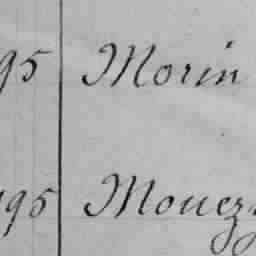 95 Morin
195 Mouez